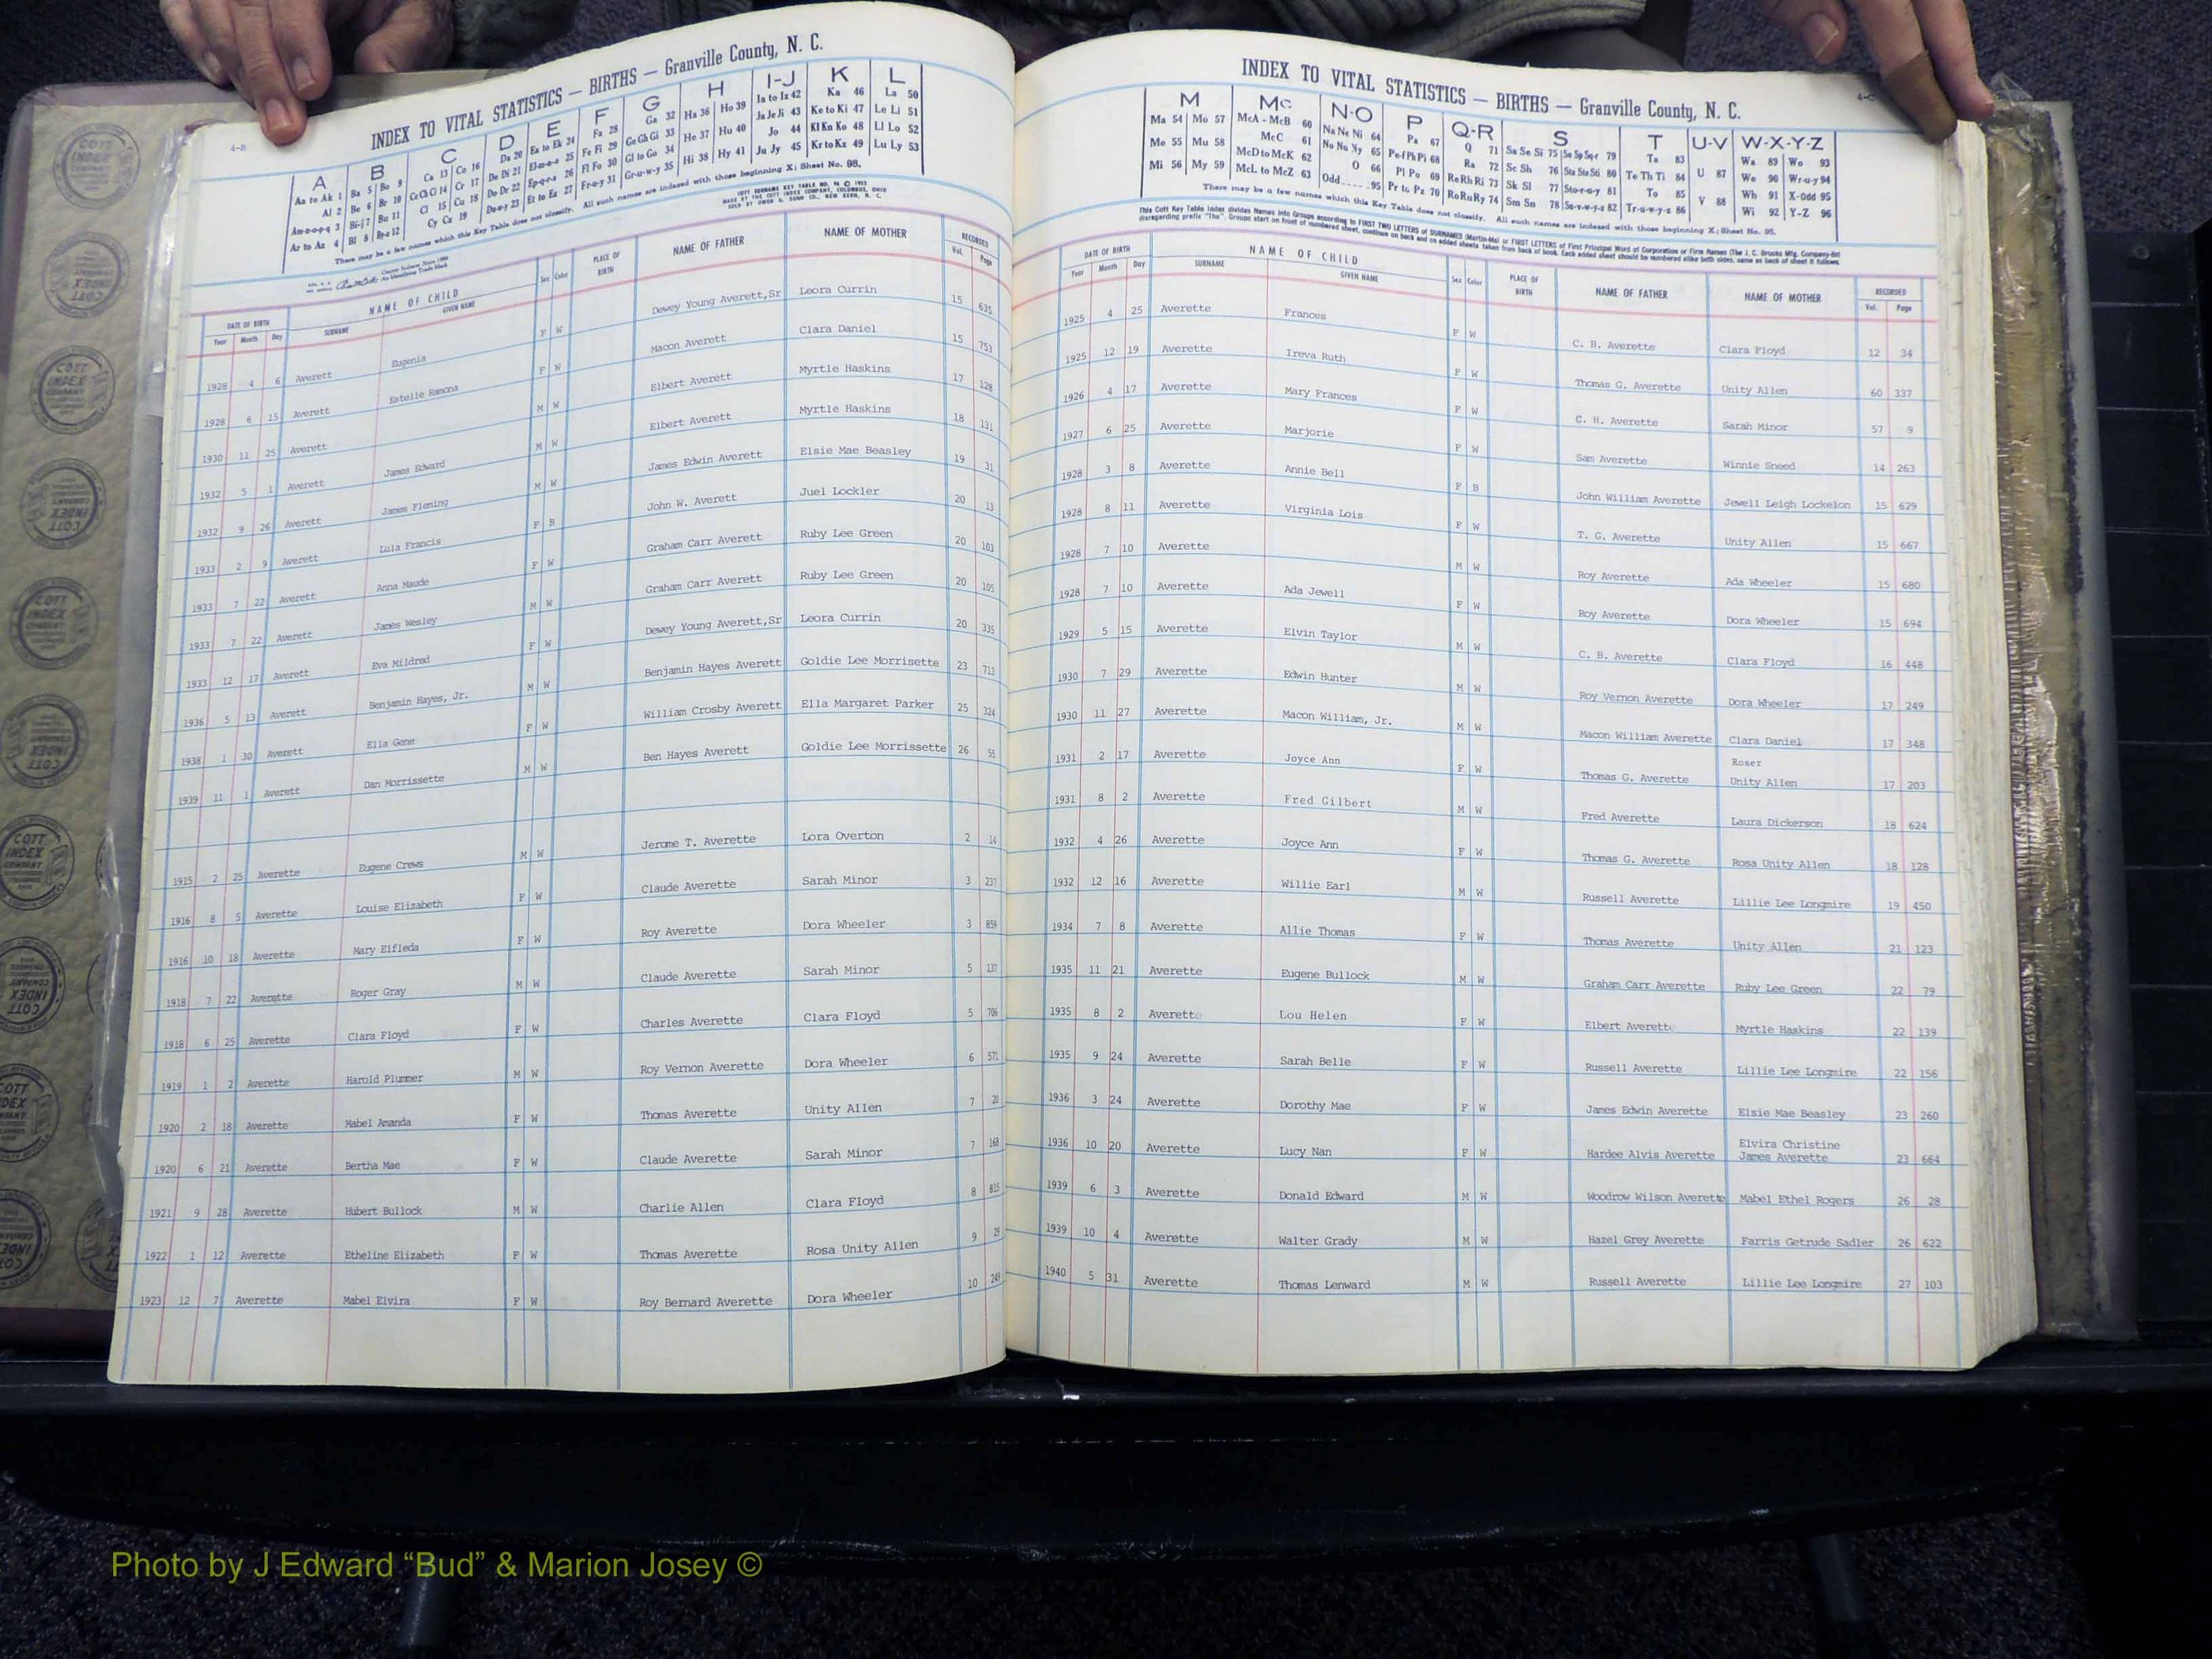 4-B
INDEX TO VITAL STATISTICS — BIRTHS — Granville County, N. C.
A B C D E F G H I-J K L
Aa to Ak 1 Ba 5 Bo 9 Ca 13 Co 16 Da 20 Ea to Ek 24 Fa 28 Ga 32 Ha 36 Ho 39 Ia to Iz 42 Ka 46 La 50
Al 2 Be 6 Br 10 Ce Ch Ci 14 Cr 17 De Di 21 El-m-n-o 25 Fe Fi 29 Ge Gh Gi 33 He 37 Hu 40 Ja Je Ji 43 Ke to Ki 47 Le Li 51
Am-n-o-p-q 3 Bi-j 7 Bu 11 Cl 15 Cu 18 Do Dr 22 Ep-q-r-s 26 Fl Fo 30 Gl to Go 34 Hi 38 Hy 41 Jo 44 Kl Kn Ko 48 Ll Lo 52
Ar to Az 4 Bl 8 By-z 12 Cy Cz 19 Du-w-y 23 Et to Ez 27 Fr-u-y 31 Gr-u-w-y 35 Ju Jy 45 Kr to Kz 49 Lu Ly 53
There may be a few names which this Key Table does not classify. All such names are indexed with those beginning X; Sheet No. 95.
DATE OF BIRTH NAME OF CHILD Sex Color PLACE OF BIRTH NAME OF FATHER NAME OF MOTHER RECORDED
Year Month Day SURNAME GIVEN NAME Vol. Page
1928 4 6 Averett Eugenia F W Dewey Young Averett,Sr Leora Currin 15 635
1928 6 15 Averett Estelle Ramona F W Macon Averett Clara Daniel 15 753
1930 11 25 Averett M W Elbert Averett Myrtle Haskins 17 128
1932 5 1 Averett James Edward M W Elbert Averett Myrtle Haskins 18 131
1932 9 26 Averett James Fleming M W James Edwin Averett Elsie Mae Beasley 19 31
1933 2 9 Averett Lula Francis F B John W. Averett Juel Lockler 20 13
1933 7 22 Averett Anna Maude F W Graham Carr Averett Ruby Lee Green 20 103
1933 7 22 Averett James Wesley M W Graham Carr Averett Ruby Lee Green 20 105
1933 12 17 Averett Eva Mildred F W Dewey Young Averett,Sr Leora Currin 20 335
1936 5 13 Averett Benjamin Hayes, Jr. M W Benjamin Hayes Averett Goldie Lee Morrisette 23 713
1938 1 30 Averett Ella Gene F W William Crosby Averett Ella Margaret Parker 25 324
1939 11 1 Averett Dan Morrissette M W Ben Hayes Averett Goldie Lee Morrissette 26 55
1915 2 25 Averette Eugene Crews M W Jerome T. Averette Lora Overton 2 14
1916 8 5 Averette Louise Elizabeth F W Claude Averette Sarah Minor 3 237
1916 10 18 Averette Mary Elfleda F W Roy Averette Dora Wheeler 3 859
1918 7 22 Averette Roger Gray M W Claude Averette Sarah Minor 5 137
1918 6 25 Averette Clara Floyd F W Charles Averette Clara Floyd 5 706
1919 1 2 Averette Harold Plummer M W Roy Vernon Averette Dora Wheeler 6 571
1920 2 18 Averette Mabel Amanda F W Thomas Averette Unity Allen 7 20
1920 6 21 Averette Bertha Mae F W Claude Averette Sarah Minor 7 168
1921 9 28 Averette Hubert Bullock M W Charlie Allen Clara Floyd 8 815
1922 1 12 Averette Etheline Elizabeth F W Thomas Averette Rosa Unity Allen 9 29
1923 12 7 Averette Mabel Elvira F W Roy Bernard Averette Dora Wheeler 10 249
INDEX TO VITAL STATISTICS — BIRTHS — Granville County, N. C.
M Mc N-O P Q-R S T U-V W-X-Y-Z
Ma 54 Mo 57 McA - McB 60 Na Ne Ni 64 Pa 67 Q 71 Sa Se Si 75 So Sp Sq-r 79 Ta 83 U 87 Wa 89 Wo 93
Me 55 Mu 58 McC 61 No Nu Ny 65 Pe-f Ph Pi 68 Ra 72 Sc Sh 76 Sta Ste Sti 80 Te Th Ti 84 V 88 We 90 Wr-u-y 94
Mi 56 My 59 McD to McK 62 O 66 Pl Po 69 Re Rh Ri 73 Sk Sl 77 Sto-r-u-y 81 To 85 Wh 91 X-Odd 95
McL to McZ 63 Odd 95 Pr to Pz 70 Ro Ru Ry 74 Sm Sn 78 Su-v-w-y-z 82 Tr-u-w-y-z 86 Wi 92 Y-Z 96
There may be a few names which this Key Table does not classify. All such names are indexed with those beginning X; Sheet No. 95.
DATE OF BIRTH NAME OF CHILD Sex Color PLACE OF BIRTH NAME OF FATHER NAME OF MOTHER RECORDED
Year Month Day SURNAME GIVEN NAME Vol. Page
1925 4 25 Averette Frances F W C. B. Averette Clara Floyd 12 34
1925 12 19 Averette Ireva Ruth F W Thomas G. Averette Unity Allen 60 337
1926 4 17 Averette Mary Frances F W C. H. Averette Sarah Minor 57 9
1927 6 25 Averette Marjorie F W Sam Averette Winnie Sneed 14 263
1928 3 8 Averette Annie Bell F B John William Averette Jewell Leigh Lockelon 15 629
1928 8 11 Averette Virginia Lois F W T. G. Averette Unity Allen 15 667
1928 7 10 Averette M W Roy Averette Ada Wheeler 15 680
1928 7 10 Averette Ada Jewell F W Roy Averette Dora Wheeler 15 694
1929 5 15 Averette Elvin Taylor M W C. B. Averette Clara Floyd 16 448
1930 7 29 Averette Edwin Hunter M W Roy Vernon Averette Dora Wheeler 17 249
1930 11 27 Averette Macon William, Jr. M W Macon William Averette Clara Daniel 17 348
Roser
1931 2 17 Averette Joyce Ann F W Thomas G. Averette Unity Allen 17 203
1931 8 2 Averette Fred Gilbert M W Fred Averette Laura Dickerson 18 624
1932 4 26 Averette Joyce Ann F W Thomas G. Averette Rosa Unity Allen 18 128
1932 12 16 Averette Willie Earl M W Russell Averette Lillie Lee Longmire 19 450
1934 7 8 Averette Allie Thomas F W Thomas Averette Unity Allen 21 123
1935 11 21 Averette Eugene Bullock M W Graham Carr Averette Ruby Lee Green 22 79
1935 8 2 Averette Lou Helen F W Elbert Averett Myrtle Haskins 22 139
1935 9 24 Averette Sarah Belle F W Russell Averette Lillie Lee Longmire 22 156
1936 3 24 Averette Dorothy Mae F W James Edwin Averette Elsie Mae Beasley 23 260
Elvira Christine
1936 10 20 Averette Lucy Nan F W Hardee Alvis Averette James Averette 23 664
1939 6 3 Averette Donald Edward M W Woodrow Wilson Averette Mabel Ethel Rogers 26 28
1939 10 4 Averette Walter Grady M W Hazel Grey Averette Farris Getrude Sadler 26 622
1940 5 31 Averette Thomas Lenward M W Russell Averette Lillie Lee Longmire 27 103
Photo by J Edward “Bud” & Marion Josey ©